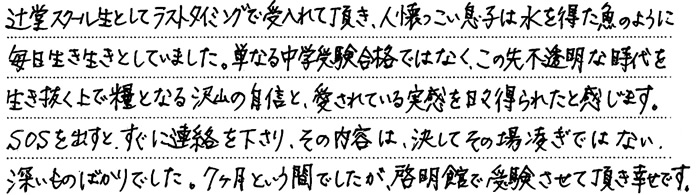 辻堂スクール生としてラストタイミングで受入れて頂き、人懐っこい息子は水を得た魚のように
毎日生き生きとしていました。単なる中学受験合格ではなく、この先不透明な時代を
生き抜く上で糧となる沢山の自信と、愛されている実感を日々得られたと感じます。
SOSを出すと、すぐに連絡を下さり、その内容は、決してその場凌ぎではない、
深いものばかりでした。7ヶ月という間でしたが、啓明館で受験させて頂き幸せです